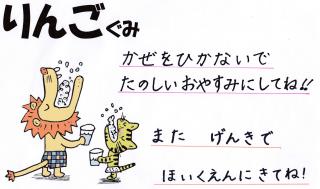 りんごぐみ
かぜをひかないで
たのしいおやすみにしてね!!
また げんきで
ほいくえんにきてね!